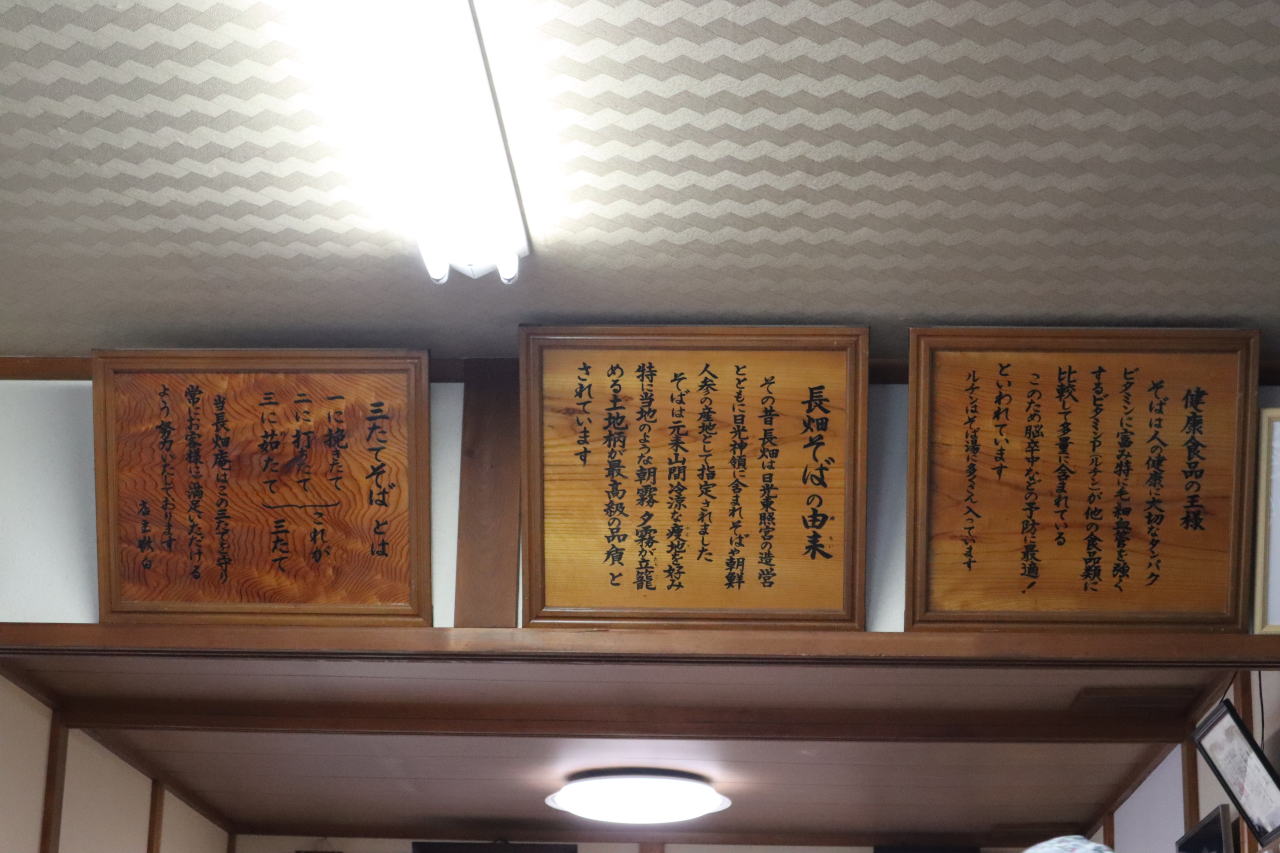 健康食品の王様
そばは人の健康に大切なタンパク
ビタミンに富み特に毛細血管を強く
するビタミンPルチンが他の食品類に
比較して多量に含まれている
このため脳卒中などの予防に最適!
といわれています
ルチンはそば湯に多く入っています
長畑そばの由来
その昔長畑は日光東照宮の造営
とともに日光神領に含まれそばや朝鮮
人参の産地として指定されました
そばは元来山間冷涼な痩地を好み
特に当地のような朝霧夕霧が立籠
める土地柄が最高級の品質と
されています
三たてそばとは
一に挽きたて
二に打ちたて
三に茹たて
これが
三たて
当長畑庵はこの三たてを守り
常にお客様に満足いただける
よう努力いたしております
店主敬白